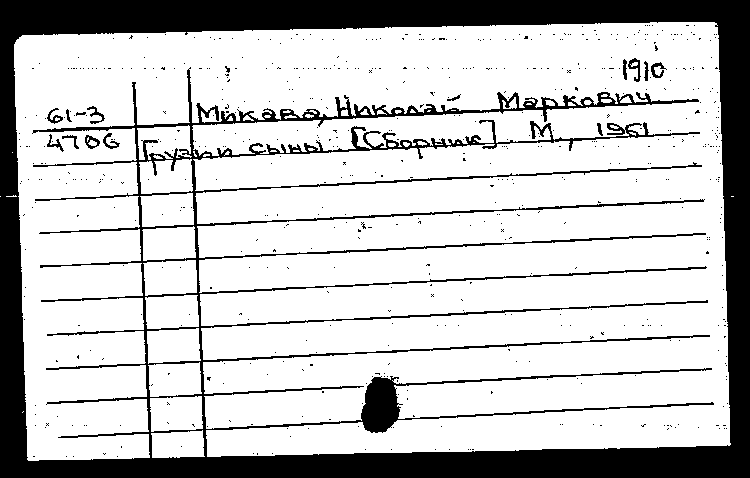 1910
61-3 Микава, Николай Маркович
4706 Грузии сыны [Сборник] М., 1961